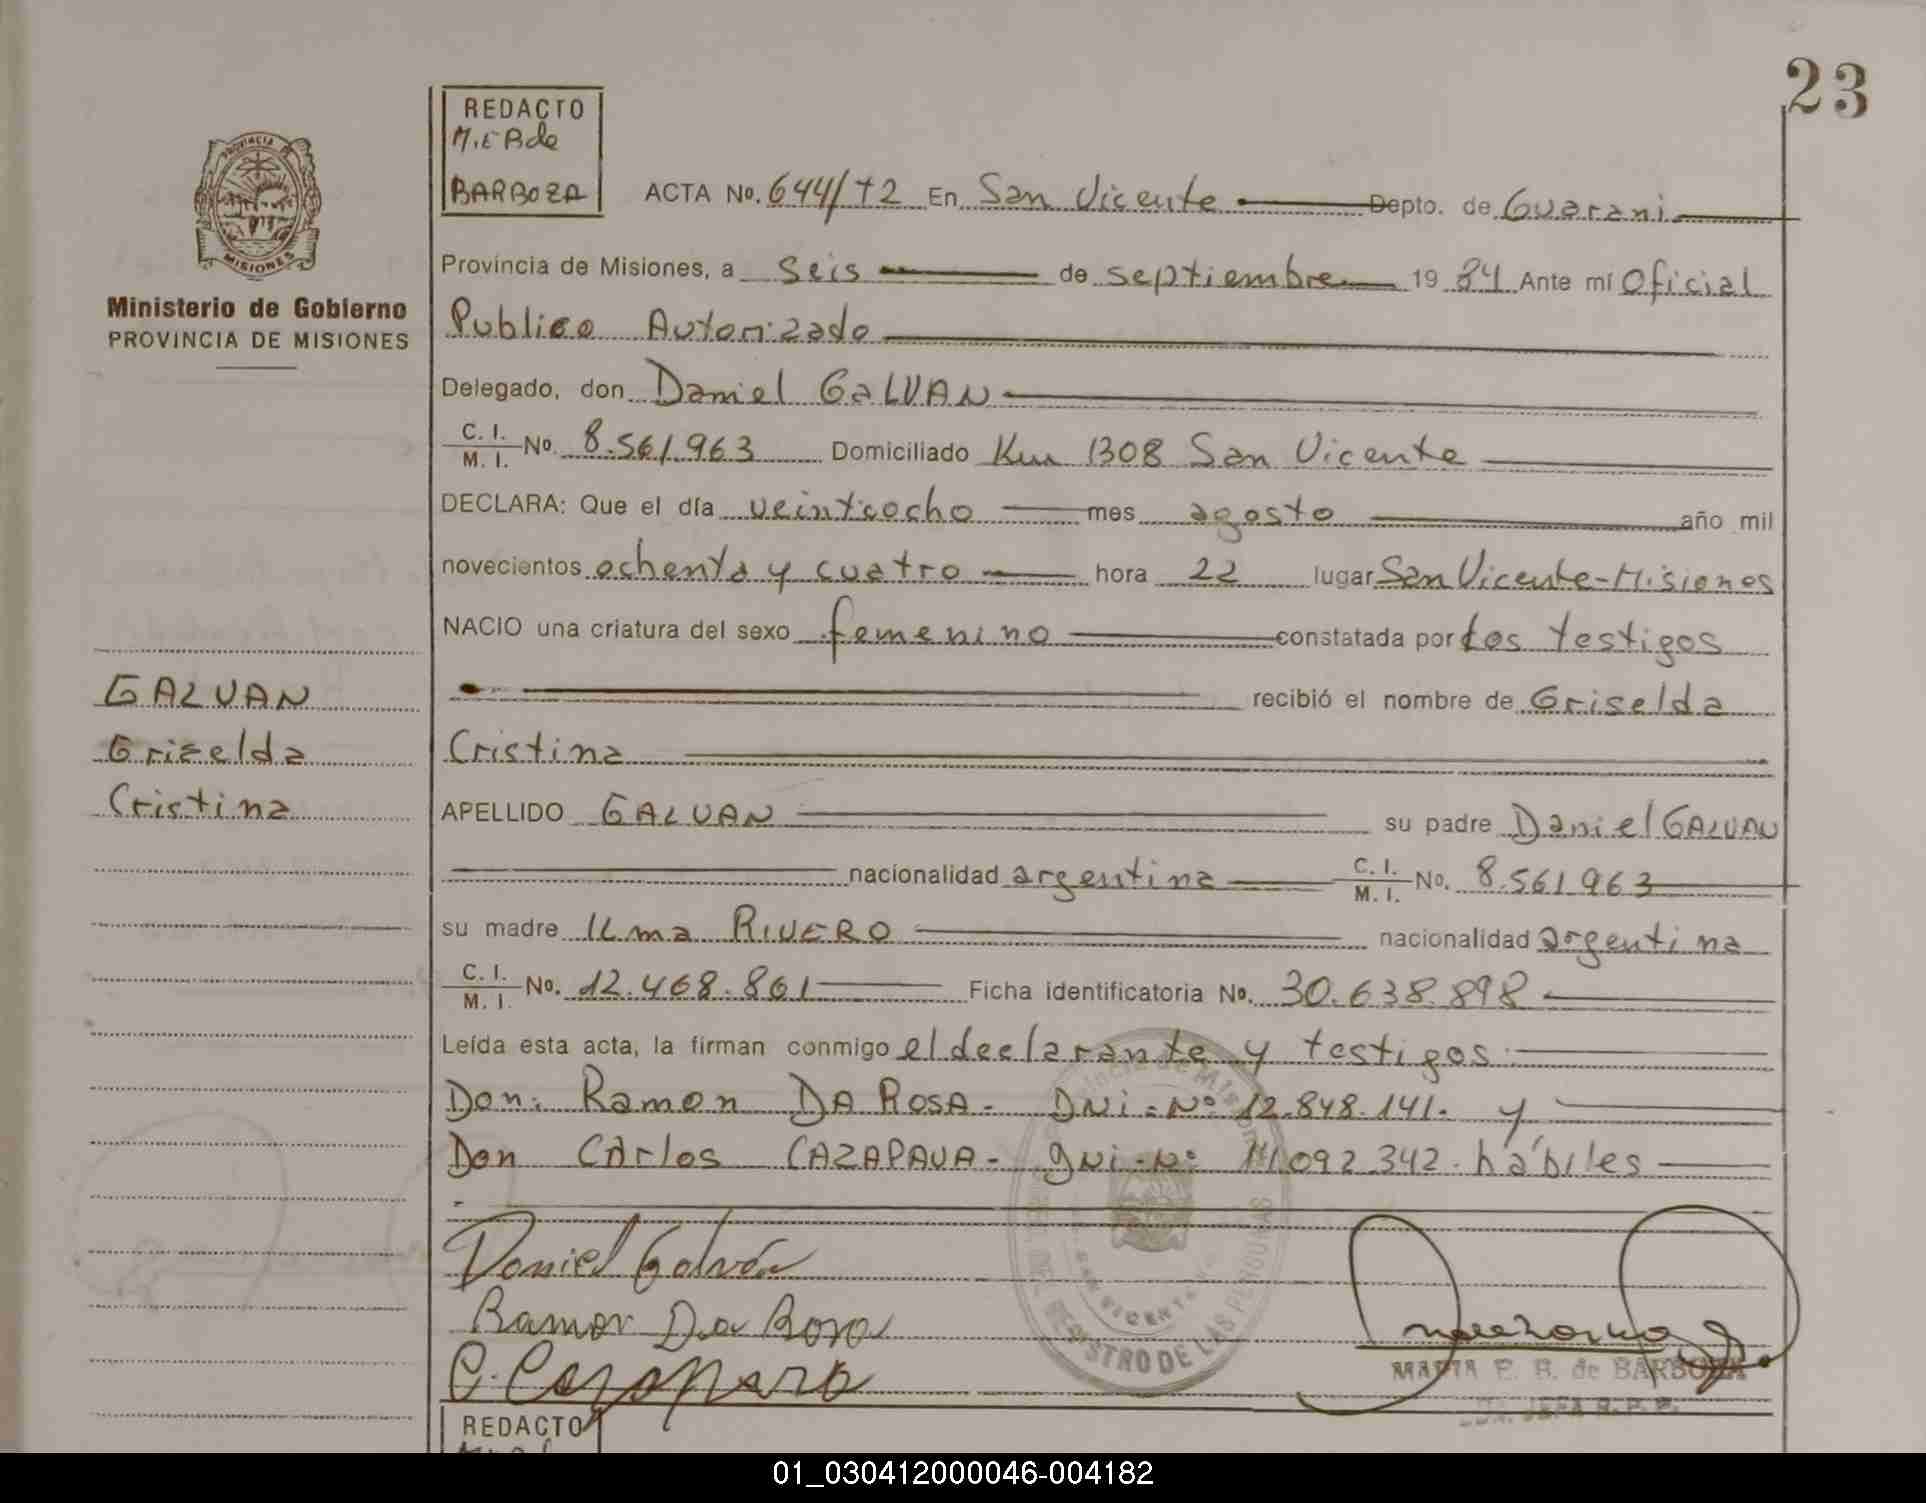 23
REDACTO
M.E B de
BARBOZA
PROVINCIA DE
MISIONES
Ministerio de Gobierno
PROVINCIA DE MISIONES
ACTA No. 644/T2 En San Vicente Depto. de Guarani
Provincia de Misiones, a seis de septiembre 19 84 Ante mí Oficial
Publico Autorizado
Delegado, don Daniel GALVAN
C. I. / M. I. No. 8.561.963 Domiciliado Km 1308 San Vicente
DECLARA: Que el día veintiocho mes agosto año mil
novecientos ochenta y cuatro hora 22 lugar San Vicente-Misiones
NACIO una criatura del sexo femenino constatada por Los testigos
recibió el nombre de Griselda
Cristina
GALVAN
Griselda
Cristina
APELLIDO GALVAN su padre Daniel GALVAN
nacionalidad argentina C. I. / M. I. No. 8.561.963
su madre ILma RIVERO nacionalidad argentina
C. I. / M. I. No. 12.468.861 Ficha identificatoria No. 30.638.898
Leída esta acta, la firman conmigo el declarante y testigos.
Don: Ramon DA ROSA- DNi=Nº 12.848.141. y
Don CArlos CAZAPAVA- DNi-Nº 11.092.342. hábiles
Daniel Galván
Ramon Da Rosa
REGISTRO DE LAS PERSONAS
SAN VICENTE
MARIA E. B. de BARBOZA
JEFA R.P.P.
REDACTO
01_030412000046-004182